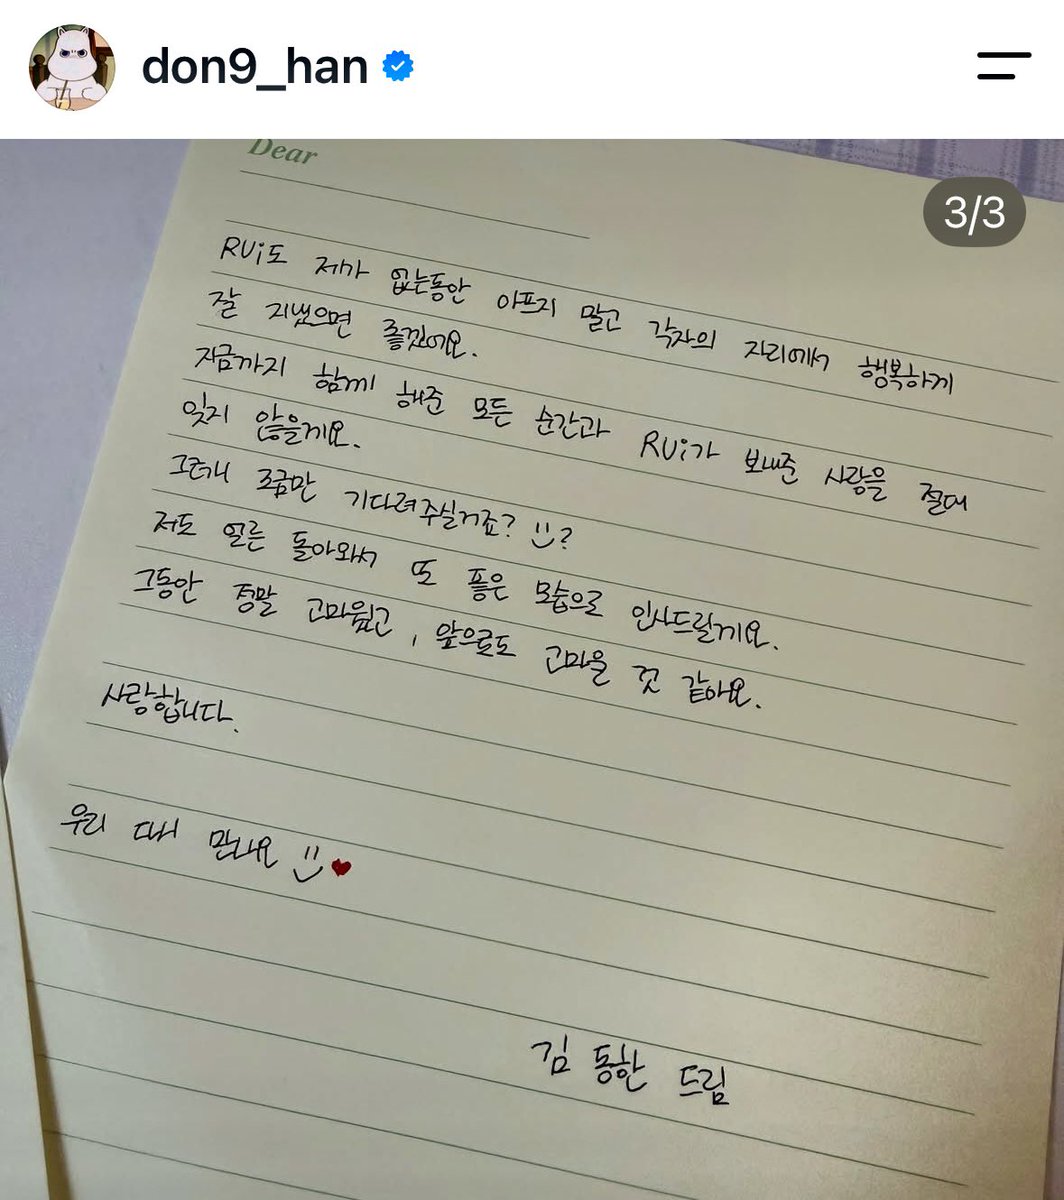 don9_han
3/3
Dear
RUi도 저가 없는동안 아프지 말고 각자의 자리에서 행복하게
잘 지냈으면 좋겠어요.
지금까지 함께 해준 모든 순간과 RUi가 보내준 사랑을 절대
잊지 않을게요.
그러니 조금만 기다려주실거죠? :)?
저도 얼른 돌아와서 또 좋은 모습으로 인사드릴게요.
그동안 정말 고마웠고, 앞으로도 고마울 것 같아요.
사랑합니다.
우리 다시 만나요 :) ♥
김동한 드림